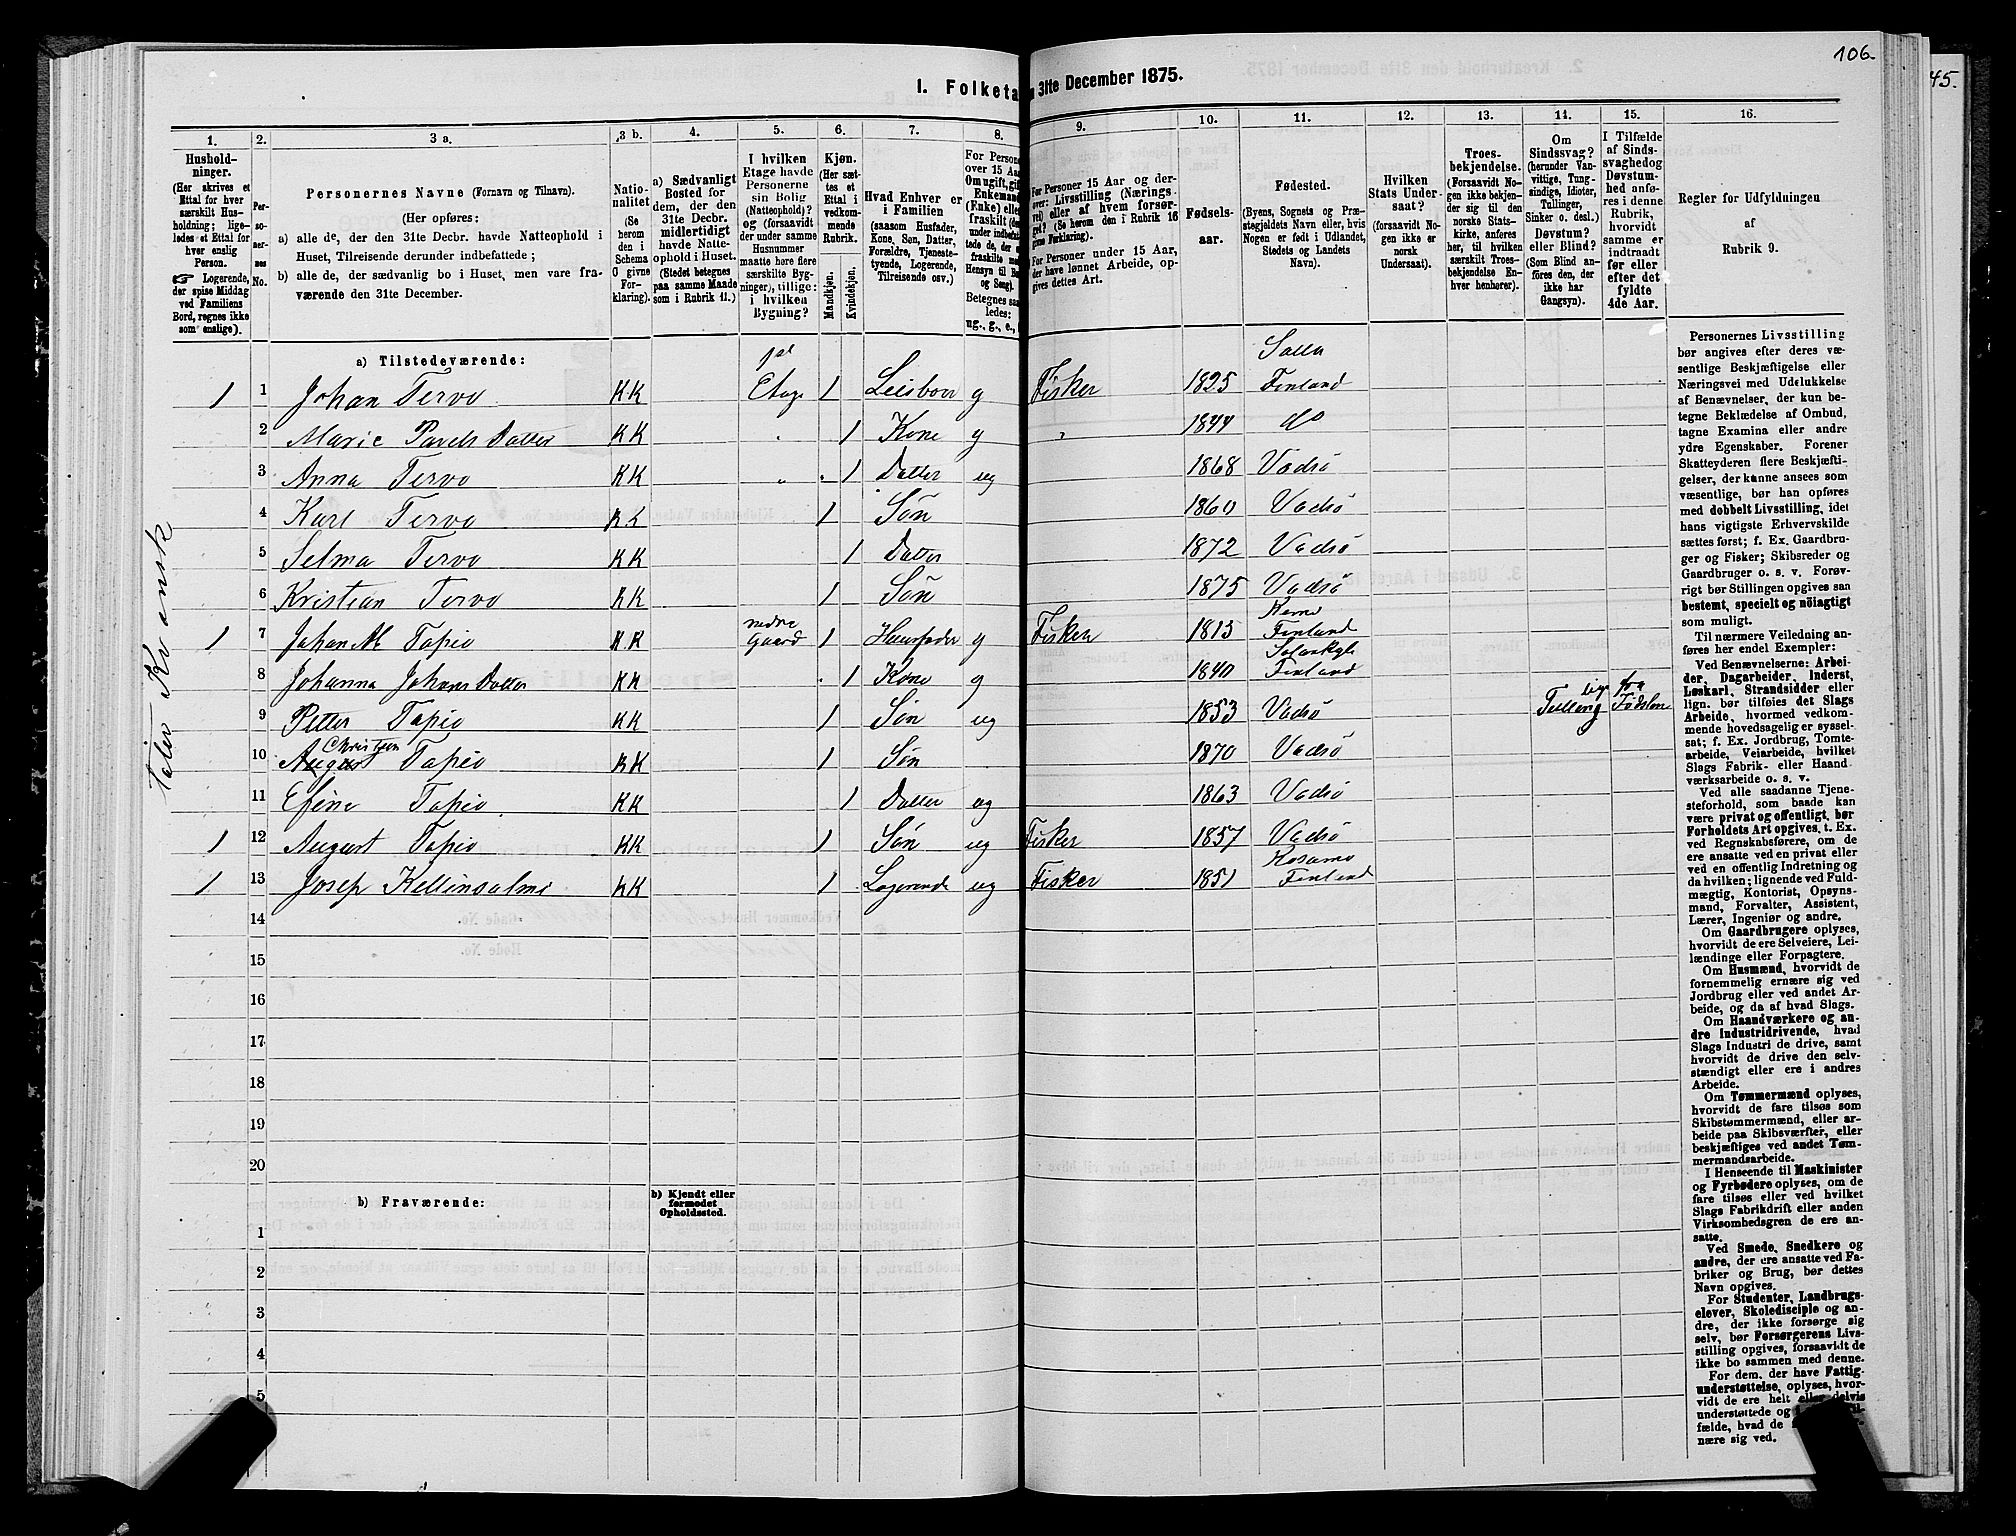 106.
45.
1. Folketa
n 31te December 1875.
1. 2. 3 a. 3 b. 4. 5. 6. 7. 8. 9. 10. 11. 12. 13. 14. 15. 16.
Hushold-
ninger.
(Her skrives et
Ettal for hver
særskilt Hus-
holdning; lige-
ledes et Ettal for
hver enslig
Person.
☞ Logerende,
der spise Middag
ved Familiens
Bord, regnes ikke
som enslige).
Per-
so-
ner-
nes
No.
Personernes Navne (Fornavn og Tilnavn).
(Her opføres:
a) alle de, der den 31te Decbr. havde Natteophold i
Huset, Tilreisende derunder indbefattede;
b) alle de, der sædvanlig bo i Huset, men vare fra-
værende den 31te December.
Natio-
nalitet
(Se
herom
den i
Schema
O givne
For-
klaring).
a) Sædvanligt
Bosted for
dem, der den
31te Decbr.
midlertidigt
havde Natte-
ophold i Huset.
(Stedet betegnes
paa samme Maade
som i Rubrik 11.)
I hvilken
Etage havde
Personerne
sin Bolig
(Natteophold)?
og (forsaavidt
der under samme
Husnummer
maatte høre flere
særskilte Byg-
ninger), tillige:
i hvilken
Bygning?
Kjøn.
(Her sæt-
tes et
Ettal i
vedkom-
mende
Rubrik.
Mandkjøn.
Kvindekjøn.
Hvad Enhver er
i Familien
(saasom Husfader,
Kone, Søn, Datter,
Forældre, Tjeneste-
tyende, Logerende,
Tilreisende osv.)
For Persone
over 15 Aar
Om ugift, gif
Enkemand
(Enke) elle
fraskilt (de
under indbefat-
tede de, der
fraskilte m
Hensyn til B
og Seng).
Betegnes saa
ledes:
ug., g., e.,
For Personer 15 Aar og der-
over: Livsstilling (Nærings-
vei) eller af hvem forsør-
get? (Se herom den i Rubrik 16
givne Forklaring).
For Personer under 15 Aar,
der have lønnet Arbeide, op-
gives dettes Art.
Fødsels-
aar.
Fødested.
(Byens, Sognets og Præ-
stegjeldets Navn eller, hvis
Nogen er født i Udlandet,
Stedets og Landets
Navn).
Hvilken
Stats Under-
saat?
(forsaavidt No-
gen ikke er
norsk
Undersaat).
Troes-
bekjendelse.
(Forsaavidt No-
gen ikke bekjen-
der sig til den
norske Stats-
kirke, anføres
her, til hvilken
særskilt Troes-
bekjendelse En-
hver henhører).
Om
Sindssvag?
(herunder Van-
vittige, Tung-
sindige, Idioter,
Tullinger,
Sinker o. desl.)
Døvstum?
eller Blind?
(Som Blind an-
føres den, der
ikke har
Gangsyn).
I Tilfælde
af Sinds-
svaghed og
Døvstum-
hed anfø-
res i denne
Rubrik,
hvorvidt
samme er
indtraadt
før eller
efter det
fyldte
4de Aar.
Regler for Udfyldningen
af
Rubrik 9.
a) Tilstedeværende:
1 1 Johan Tervo KK 1st Etage 1 Leisboer g Fisker 1825 Salla Finland
2 Marie Pavels Datter KK " 1 Kone g " 1844 do
3 Anna Tervo KK " 1 Datter ug 1868 Vadsø
4 Karl Tervo KK 1 Søn 1860 Vadsø
5 Selma Tervo KK 1 Datter 1872 Vadsø
6 Kristian Tervo KK 1 Søn 1875 Vadsø
1 7 Johan M Tapio KK nedre Gaard 1 Huusfader g Fisker 1815 Kemi Finland
8 Johanna Johans Datter KK 1 Kone g 1840 Finland
9 Petter Tapio KK 1 Søn ug 1853 Vadsø Tulling fra Fødslen
10 August Christian Tapio KK 1 Søn 1870 Vadsø
11 Efine Tapio KK 1 Datter ug 1863 Vadsø
1 12 August Tapio KK 1 Søn ug Fisker 1857 Vadsø
1 13 Josep Kellinsalmi KK 1 Logerende ug Fisker 1851 Kosamo Finland
14
15
16
17
18
19
20
b) Fraværende:
b) Kjendt eller
formodet
Opholdssted.
1
2
3
4
5
Taler Kvænsk
Personernes Livsstilling
bør angives efter deres væ-
sentlige Beskjæftigelse eller
Næringsvei med Udelukkelse
af Benævnelser, der kun be-
tegne Beklædelse af Ombud,
tagne Examina eller andre
ydre Egenskaber. Forener
Skatteyderen flere Beskjæfti-
gelser, der kunne ansees som
væsentlige, bør han opføres
med dobbelt Livsstilling, idet
hans vigtigste Erhvervskilde
sættes først; f. Ex. Gaardbru-
ger og Fisker; Skibsreder og
Gaardbruger o. s. v. Forøv-
rigt bør Stillingen opgives saa
bestemt, specielt og nøiagtigt
som muligt.
Til nærmere Veiledning an-
føres her endel Exempler:
Ved Benævnelserne: Arbei-
der, Dagarbeider, Inderst,
Løskarl, Strandsidder eller
lign. bør tilføies det Slags
Arbeide, hvormed vedkom-
mende hovedsagelig er syssel-
sat; f. Ex. Jordbrug, Tomte-
arbeide, Veiarbeide, hvilket
Slags Fabrik- eller Haand-
værksarbeide o. s. v.
Ved alle saadanne Tjene-
steforhold, som baade kan
være privat og offentligt, bør
Forholdets Art opgives, t. Ex.
ved Regnskabsførere, om de
ere ansatte ved en privat eller
ved en offentlig Indretning og
da hvilken; lignende ved Fuld-
mægtig, Kontorist, Opsyns-
mand, Forvalter, Assistent,
Lærer, Ingeniør og andre.
Om Gaardbrugere oplyses,
hvorvidt de ere Selveiere, Lei-
lændinge eller Forpagtere.
Om Husmænd, hvorvidt de
fornemmelig ernære sig ved
Jordbrug eller ved andet Ar-
beide, og da af hvad Slags.
Om Haandværkere og an-
dre Industridrivende, hvad
Slags Industri de drive, samt
hvorvidt de drive den selv-
stændigt eller ere i andres
Arbeide.
Om Tømmermænd oplyses,
hvorvidt de fare tilsøs som
Skibstømmermænd, eller ar-
beide paa Skibsværfter, eller
beskjæftiges ved andet Tøm-
mermandsarbeide.
I Henseende til Maskinister
og Fyrbødere oplyses, om de
fare tilsøs eller ved hvilket
Slags Fabrikdrift eller anden
Virksomhedsgren de ere an-
satte.
Ved Smede, Snedkere og
andre, der ere ansatte ved Fa-
briker og Brug, bør dettes
Navn opgives.
For Studenter, Landbrugs-
elever, Skoledisciple og an-
dre, der ikke forsørge sig
selv, bør Forsørgerens Livs-
stilling opgives, forsaavidt de
ikke bo sammen med denne.
For dem, der have Fattig-
understøttelse, oplyses, hvor-
vidt de ere helt eller delvis
understøttede og
fælde, hvad de
nære sig ved.